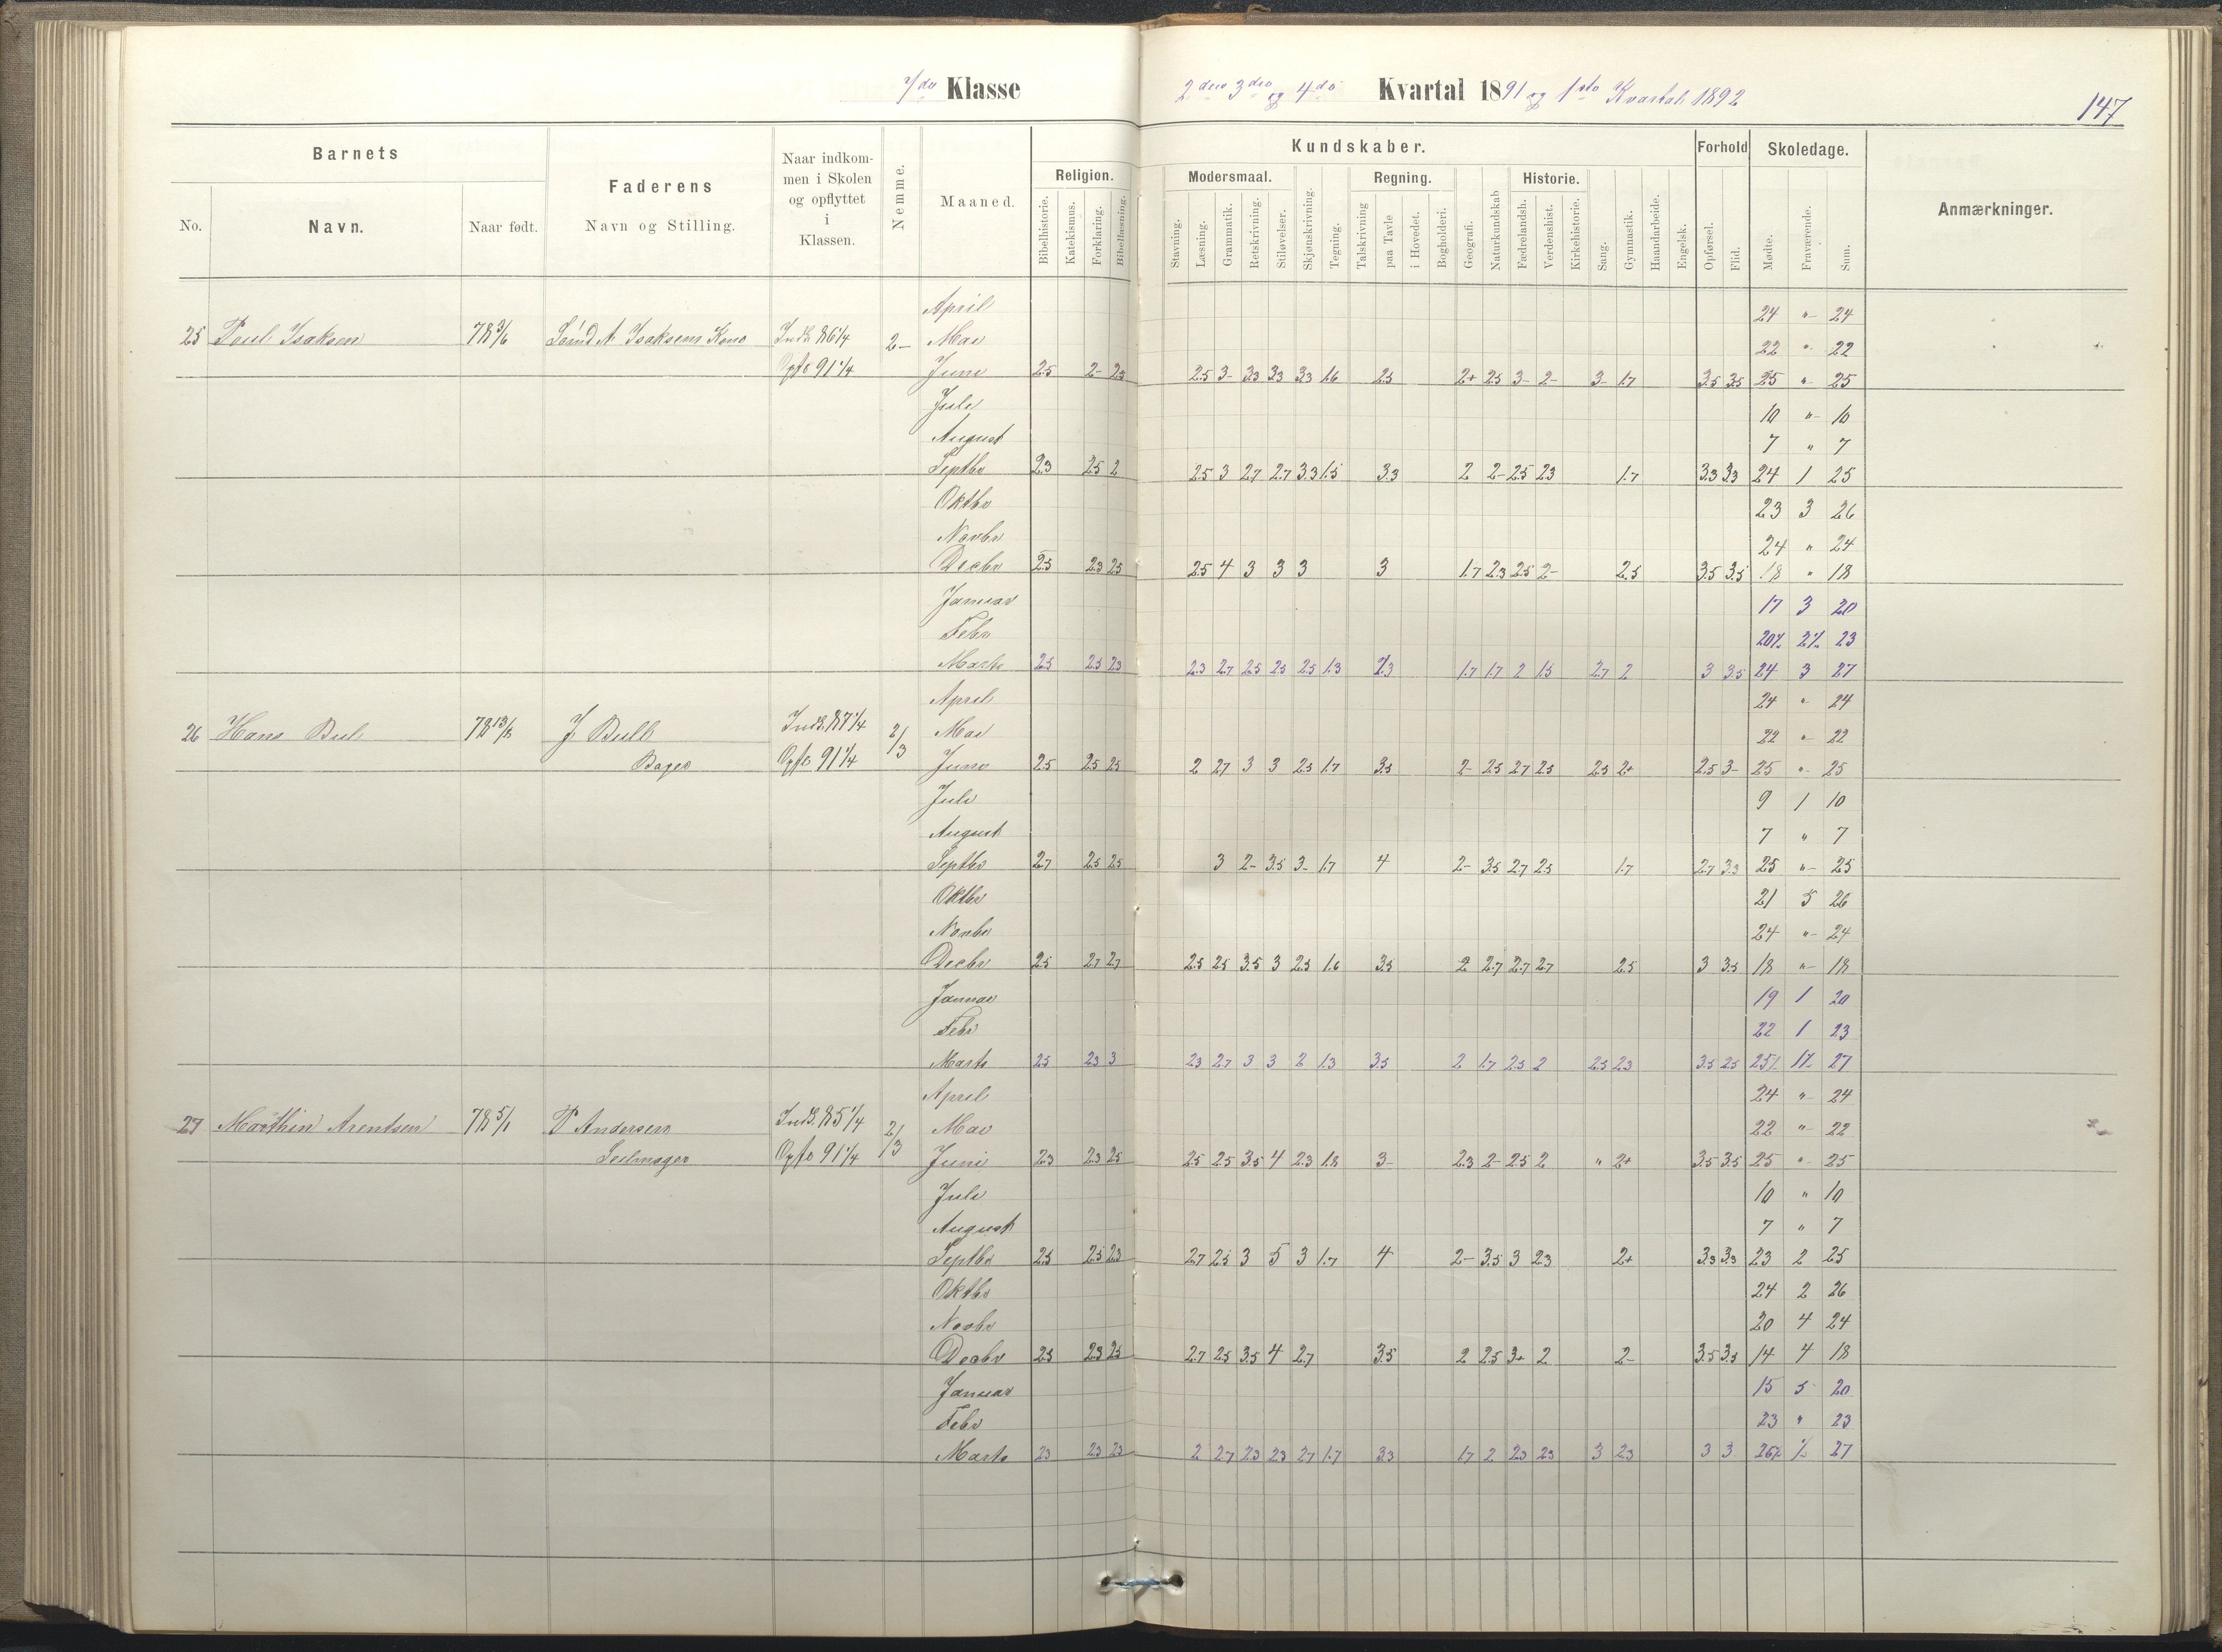 Klasse
2den 3die og 4de Kvartal 1891 og 1ste Kvartal 1892
147
Barnets
No.
Navn.
Naar født.
Faderens
Navn og Stilling.
Naar indkom-
men i Skolen
og opflyttet
i
Klassen.
Nemme.
Maaned.
Kundskaber.
Religion.
Bibelhistorie.
Katekismus.
Forklaring.
Bibellæsning.
Modersmaal.
Stavning.
Læsning.
Grammatik.
Retskrivning.
Stiløvelser.
Skjønskrivning.
Tegning.
Regning.
Talskrivning
paa Tavle
i Hovedet.
Bogholderi.
Geografi.
Naturkundskab
Historie.
Fædrelandsh.
Verdenshist.
Kirkehistorie.
Sang.
Gymnastik.
Haandarbeide.
Engelsk.
Forhold
Opførsel.
Flid.
Skoledage.
Mødte.
Fraværende.
Sum.
Anmærkninger.
April 24 " 24
25 Poul Isaksen 78 3/6 A Isaksens Kone Indk 86 1/4 2- Mai 22 " 22
Opfl 91 1/4 Juni 2.5 2- 2.3 2.5 3- 3.3 3.3 3.3 1.6 2.5 2+ 2.5 3- 2- 3- 1.7 3.5 3.5 25 " 25
Juli 10 " 10
August 7 " 7
Septbr 2.3 2.5 2 2.5 3 2.7 2.7 3.3 1.5 3.3 2 2- 2.5 2.3 1.7 3.3 3.3 24 1 25
Oktbr 23 3 26
Novbr 24 " 24
Decbr 2.5 2.3 2.5 2.5 4 3 3 3 3 1.7 2.3 2.5 2- 2.5 3.5 3.5 18 " 18
Januar 17 3 20
Febr 20½ 2½ 23
Marts 2.5 2.5 2.3 2.3 2.7 2.5 2.5 2.5 1.3 2.3 1.7 1.7 2 1.5 2.7 2 3 3.5 24 3 27
April 24 " 24
26 Hans Bul 78 13/8 J Bull Indk. 87 1/4 2/3 Mai 22 " 22
Bager Opfl 91 1/4 Juni 2.5 2.5 2.5 2 2.7 3 3 2.5 1.7 3.5 2- 2.5 2.7 2.5 2.5 2+ 2.5 3- 25 " 25
Juli 9 1 10
August 7 " 7
Septbr 2.7 2.5 2.5 3 2- 3.5 3- 1.7 4 2- 3.5 2.7 2.5 1.7 2.7 3.3 25 " 25
Oktbr 21 5 26
Novbr 24 " 24
Decbr 2.5 2.7 2.7 2.5 2.5 3.5 3 2.5 1.6 3.5 2 2.7 2.7 2.7 2.5 3 3.5 18 " 18
Januar 19 1 20
Febr 22 1 23
Marts 2.5 2.3 3 2.3 2.7 3 3 2 1.3 3.5 2 1.7 2.5 2 2.5 2.3 3.5 2.5 25½ 1½ 27
April 24 " 24
27 Marthin Arentsen 78 5/1 P Andersen Indk. 85 1/4 2/3 Mai 22 " 22
Seilmager Opfl 91 1/4 Juni 2.3 2.3 2.5 2.5 2.5 3.5 4 2.3 1.8 3- 2.3 2- 2.5 2 " 2+ 3.5 3.5 25 " 25
Juli 10 " 10
August 7 " 7
Septbr 2.5 2.5 2.3 2.7 2.5 3 5 3 1.7 4 2- 3.5 3 2.3 2+ 3.3 3.3 23 2 25
Oktbr 24 2 26
Novbr 20 4 24
Decbr 2.5 2.3 2.5 2.7 2.5 3.5 4 2.7 3.5 2 2.5 3+ 2 2- 3.5 3.5 14 4 18
Januar 15 5 20
Febr 23 " 23
Marts 2.3 2.3 2.3 2 2.7 2.3 2.3 2.7 1.7 3.3 1.7 2 2.3 2.3 3 2.3 3 3 26½ ½ 27